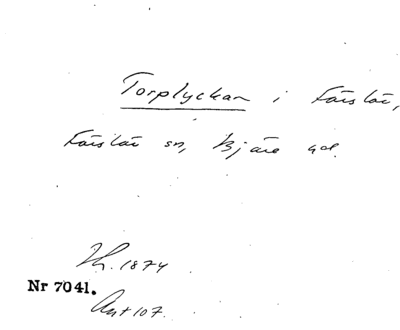 Torplyckan i Förslöv,
Förslöv sn, Bjäre hd.
Th. 1874
Nr 7041.
Ant 107.